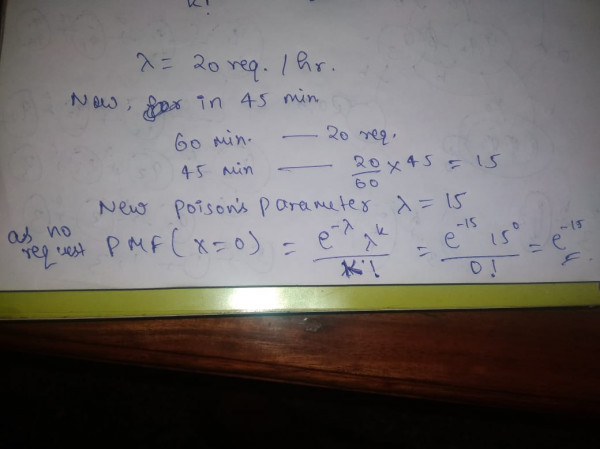 k!
λ = 20 req. / hr.
Now, in 45 min.
60 min. — 20 req.
45 min — 20/60 × 45 = 15
New Poison's Parameter λ = 15
as no request PMF( x=0) = e^-λ λ^k / k! = e^-15 15^0 / 0! = e^-15